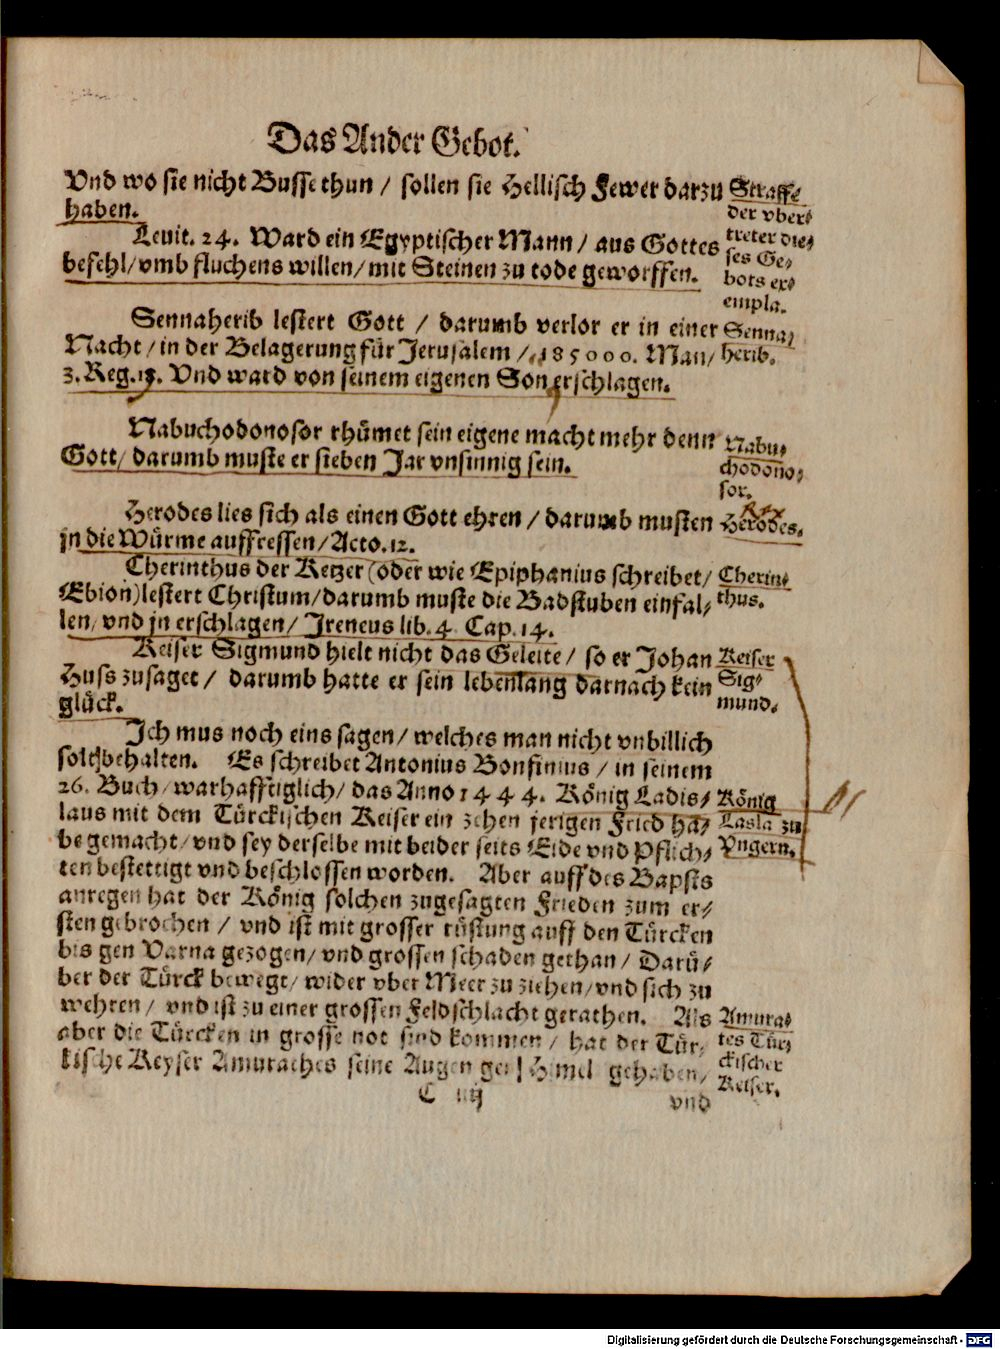 Das Ander Gebot.
Vnd wo sie nicht Busse thun / sollen sie Hellisch Fewer darzu
haben.
Straffe
der vber⸗
treter die⸗
ses Ge⸗
bots ex⸗
empla.
Leuit. 24. Ward ein Egyptischer Mann / aus Gottes
befehl / vmb fluchens willen / mit Steinen zu tode geworffen.
Sennaherib lestert Gott / darumb verlor er in einer
Nacht / in der Belagerung für Jerusalem / 185000. Man /
3. Reg. Vnd ward von seinem eigenen Son erschlagen.
Senna⸗
herib.
Nabuchodonosor rhümet sein eigene macht mehr denn
Gott / darumb muste er sieben Jar vnsinnig sein.
Nabu⸗
chodono⸗
sor.
Herodes lies sich als einen Gott ehren / darumb musten
jn die Würme auffressen / Acto. 12.
Rex
Herodes.
Cherinthus der Ketzer (oder wie Epiphanius schreibet /
Ebion) lestert Christum / darumb muste die Badstuben einfal⸗
len / vnd jn erschlagen / Ireneus lib. 4 Cap. 14.
Cherin⸗
thus.
Keiser Sigmund hielt nicht das Geleite / so er Johan
Huss zusaget / darumb hatte er sein lebenlang darnach kein
glück.
Keiser
Sig⸗
mund.
Ich mus noch eins sagen / welches man nicht vnbillich
solt behalten. Es schreibet Antonius Bonfinius / in seinem
26. Buch / warhafftiglich / das Anno 1444. König Ladis⸗
laus mit dem Türckischen Keiser ein zehen jerigen Fried ha⸗
be gemacht / vnd sey derselbe mit beider seits Eide vnd Pflich⸗
ten bestettigt vnd beschlossen worden. Aber auff des Bapsts
anregen hat der König solchen zugesagten Frieden zum er⸗
sten gebrochen / vnd ist mit grosser rüstung auff den Türcken
bis gen Varna gezogen / vnd grossen schaden gethan / Darü⸗
ber der Türck bewegt / wider vber Meer zu ziehen / vnd sich zu
wehren / vnd ist zu einer grossen Feldschlacht gerathen. Als
aber die Türcken in grosse not sind kommen / hat der Tür⸗
kische Keyser Amurathes seine Augen gen Himel gehaben /
König
Lasla zu
Vngern.
Amura⸗
tes Tür⸗
ckischer
Keiser.
C iiij
vnd
Digitalisierung gefördert durch die Deutsche Forschungsgemeinschaft - DFG